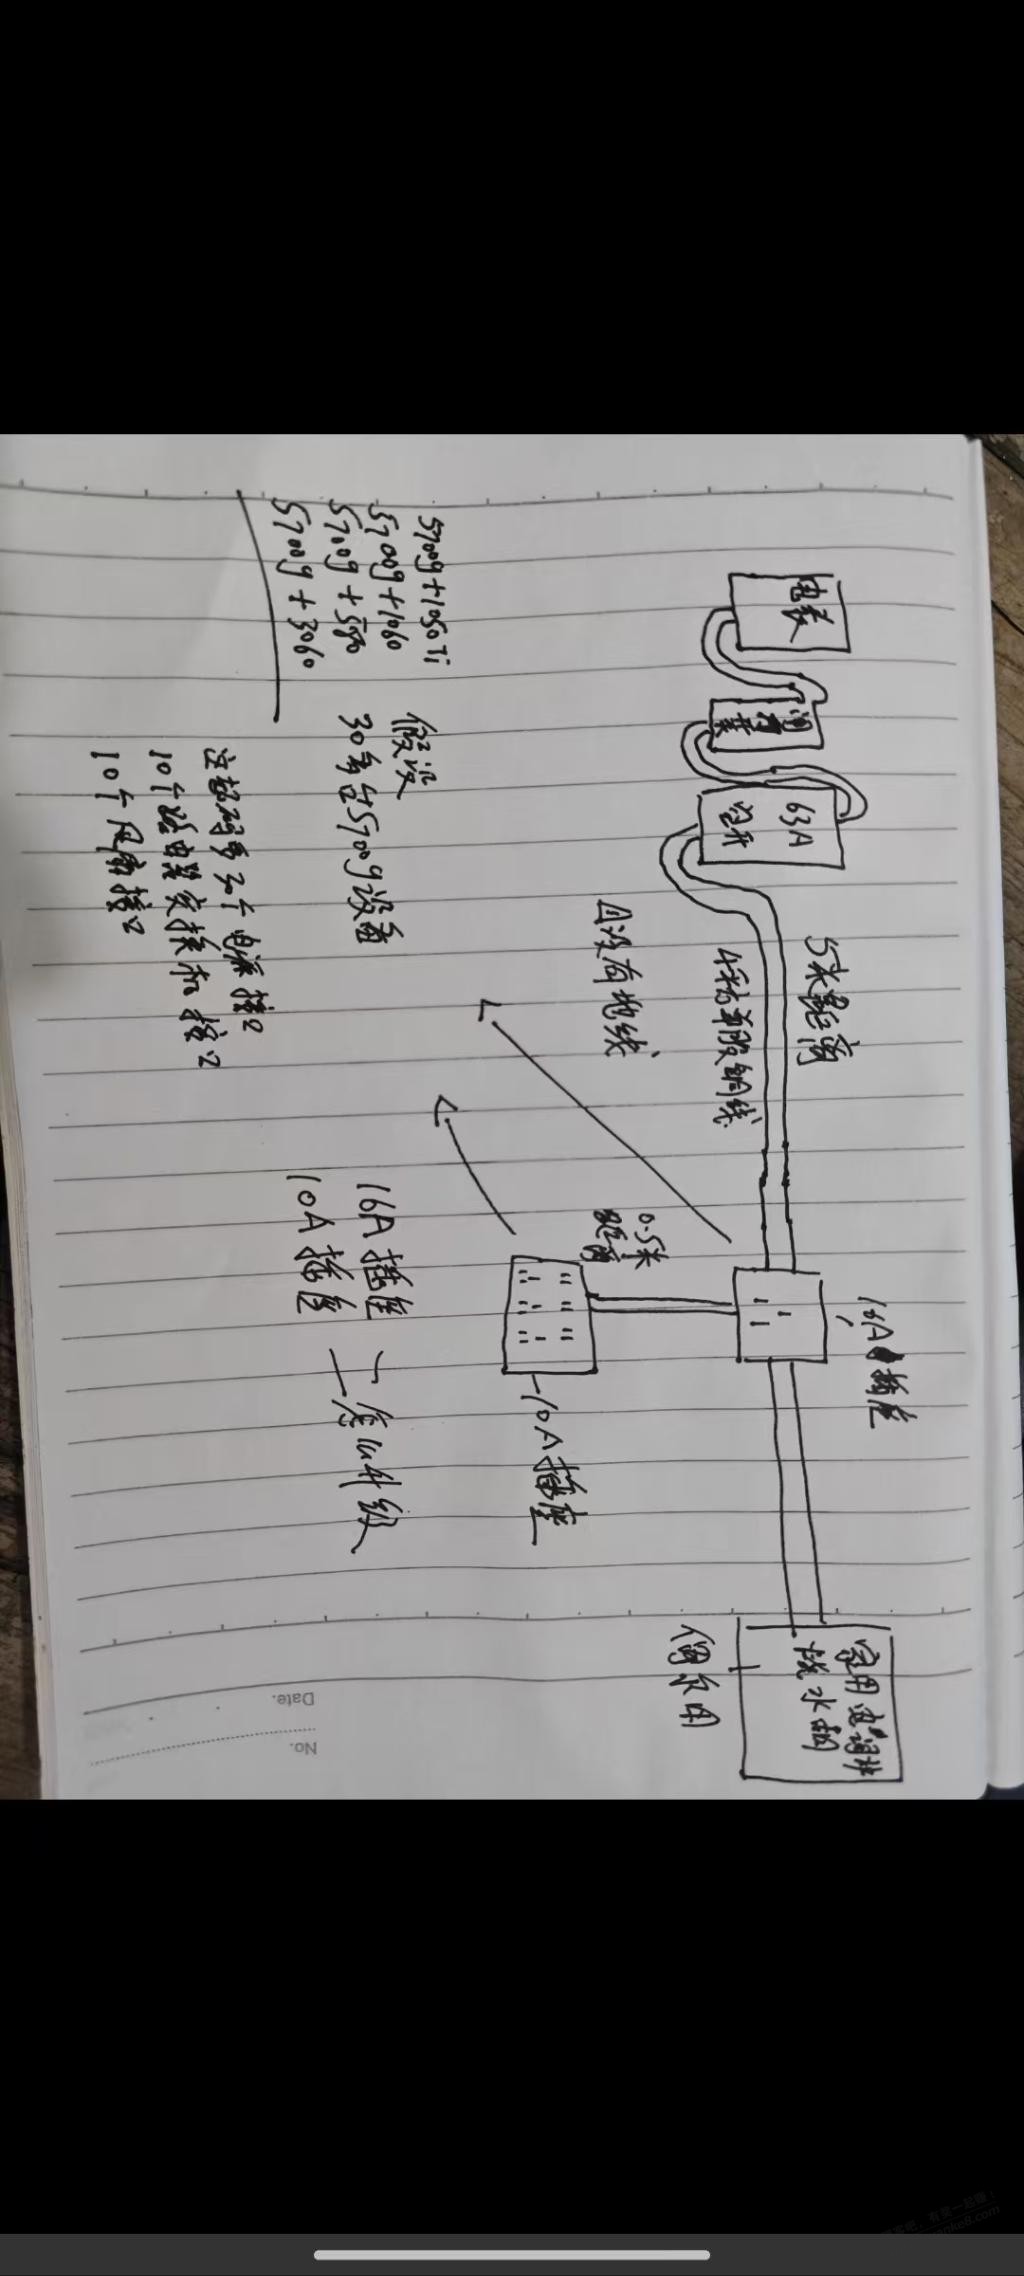 电表
63A
空开
5米距离
4平方单股铜线
且没有地线
16A插座
0.5米
距离
10A插座
家用空调
烧水用
偶尔用
16A 插座
10A 插座
怎么升级
5700g+1050Ti
5700g+1060
5700g+580
5700g+3060
假设
30多台5700g设备
这起码多30个电源接口
10个路由器交换机接口
10个风扇接口
No.
Date.